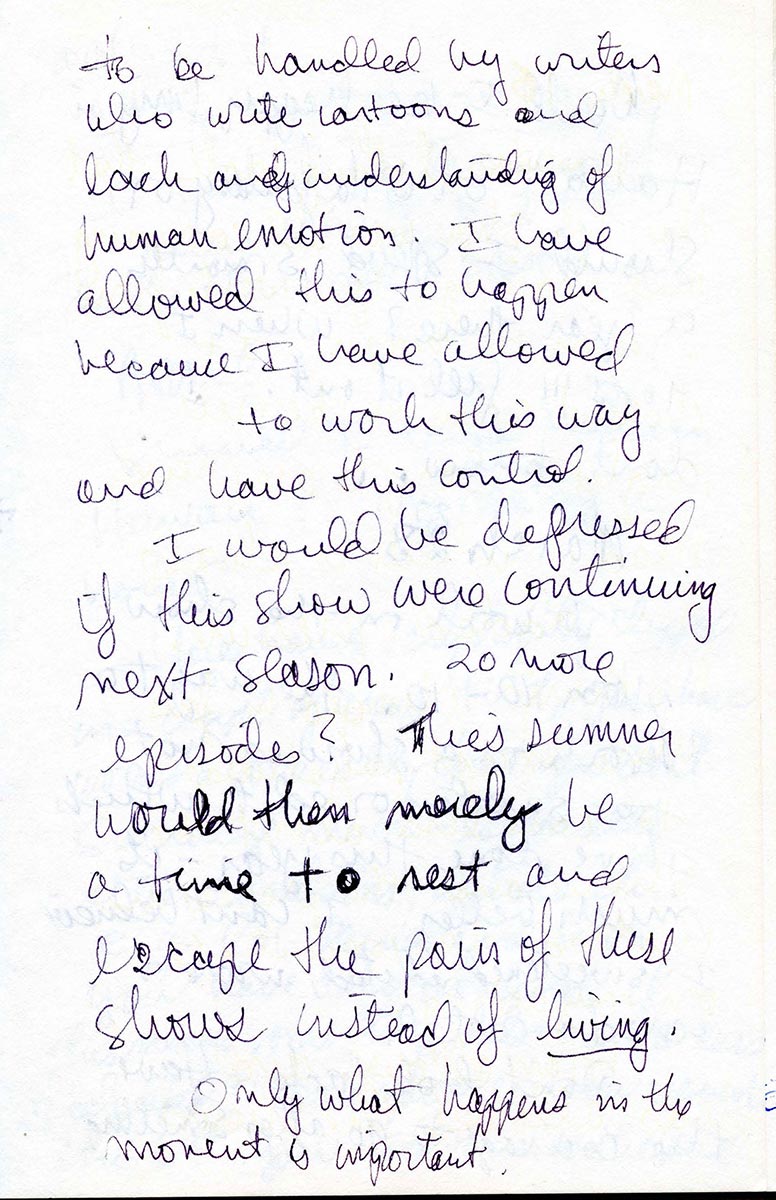 to be handled by writers
who write cartoons and
lack any understanding of
human emotion. I have
allowed this to happen
because I have allowed
to work this way
and have this control.
I would be depressed
if this show were continuing
next season. 20 more
episodes? This summer
would then merely be
a time to rest and
escape the pain of these
shows instead of living.
Only what happens in the
moment is important.